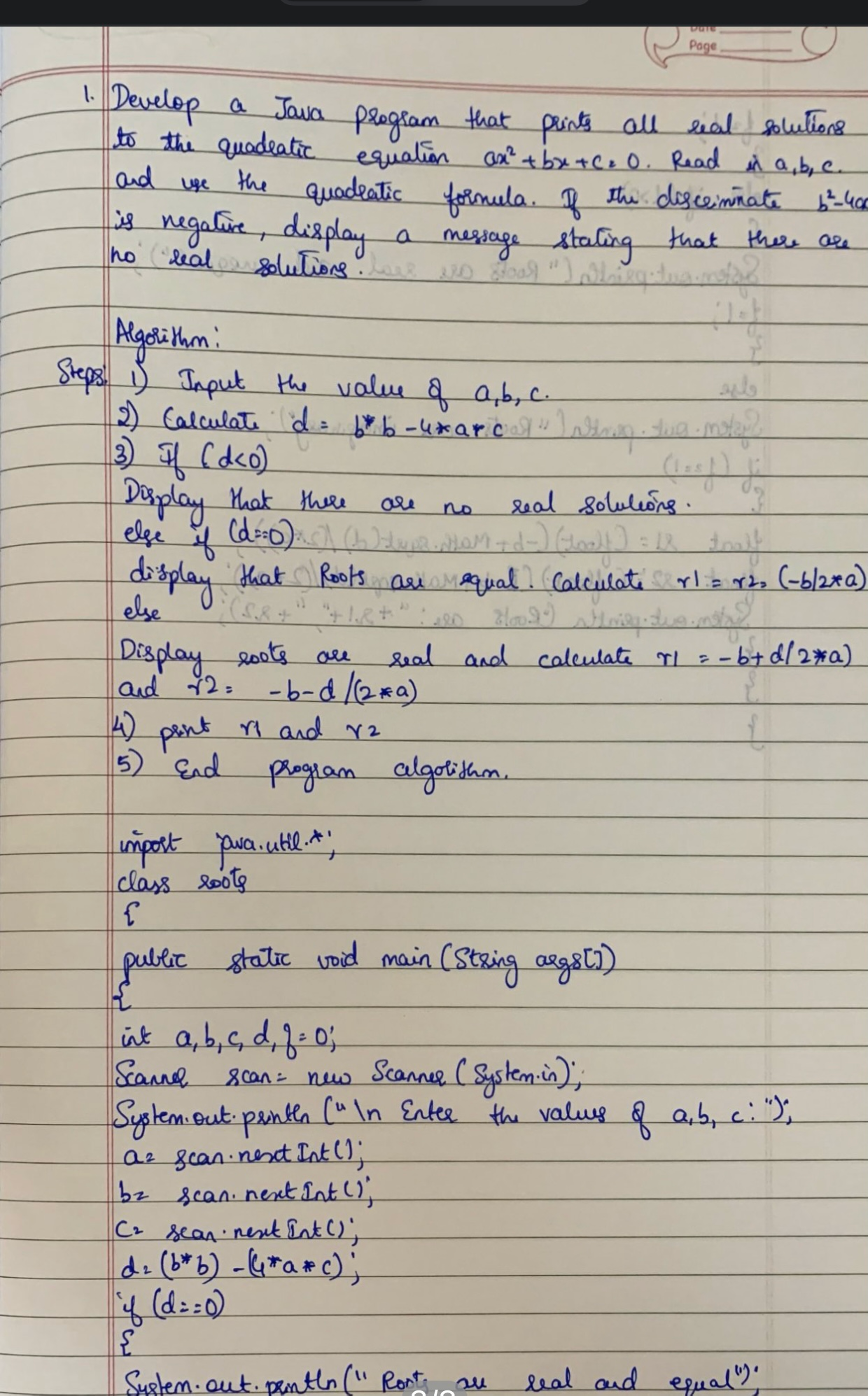 Date
Page
1. Develop a Java program that prints all real solutions
to the quadratic equation ax²+bx+c=0. Read in a,b,c.
and use the quadratic formula. If the discriminate b²-4ac
is negative, display a message stating that there are
no real solutions.
Algorithm:
Steps: 1) Input the value of a,b,c.
2) Calculate d = b*b-4*a*c
3) If (d<0)
Display that there are no real solutions.
else if (d==0)
display that Roots are equal. Calculate r1=r2=(-b/2*a)
else
Display roots are real and calculate r1 = -b+d/2*a)
and r2= -b-d/(2*a)
4) print r1 and r2
5) End program algorithm.
import java.util.*;
class roots
{
public static void main (String args[])
{
int a,b,c,d,f=0;
Scanner scan= new Scanner (System.in);
System.out.println ("\n Enter the values of a,b, c:");
a= scan.nextInt();
b= scan.nextInt();
c= scan.nextInt();
d=(b*b)-(4*a*c);
if (d==0)
{
System.out.println(" Roots are real and equal");